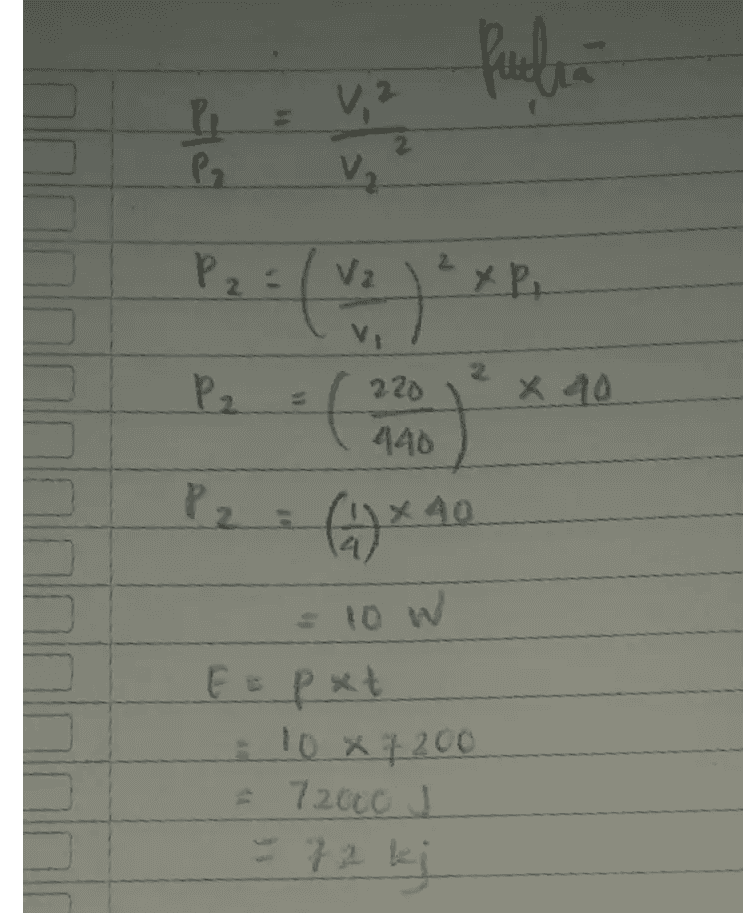 P₁/P₂ = V₁²/V₂²
P₂ = (V₂/V₁)² × P₁
P₂ = (220/440)² × 40
P₂ = (1/4) × 40
= 10 W
E = P × t
= 10 × 7200
= 72000 J
= 72 kj